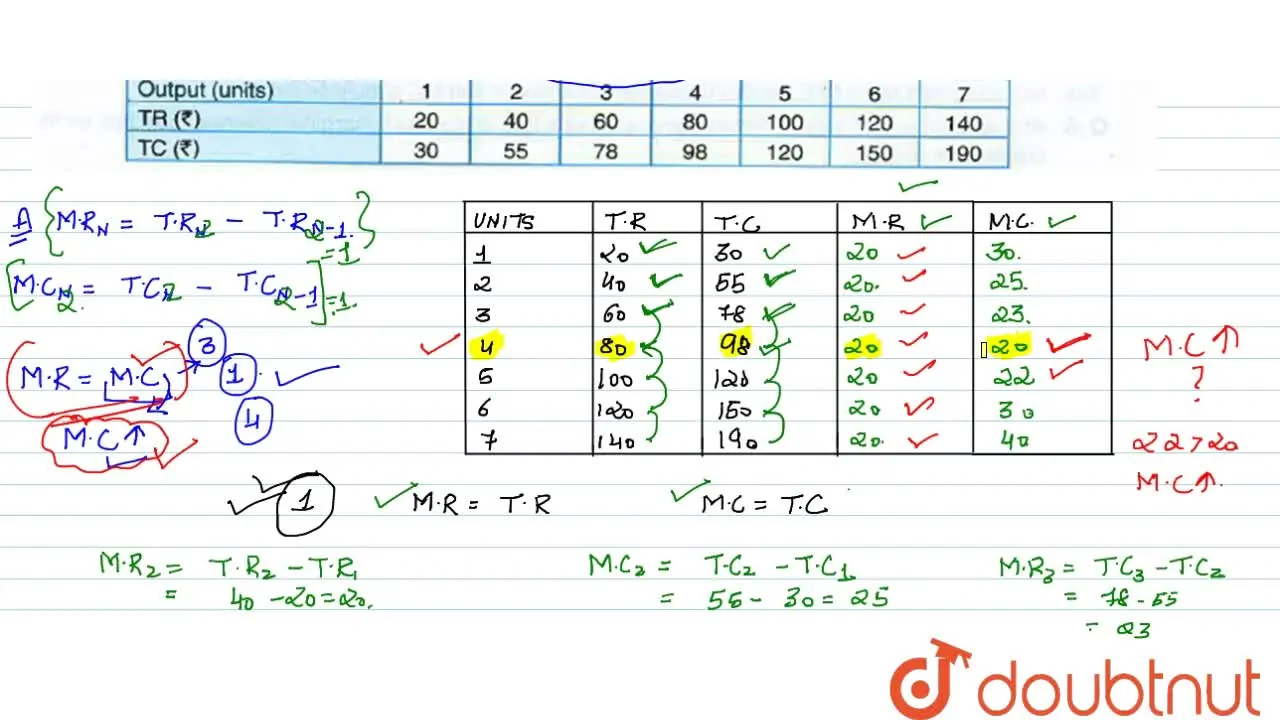 Output (units) 1 2 3 4 5 6 7
TR (₹) 20 40 60 80 100 120 140
TC (₹) 30 55 78 98 120 150 190
A M.R_N = T.R_N2 - T.R_N2-1
=1
M.C_N2 = T.C_N2 - T.C_N2-1 =1.
M.R = M.C
3
1
4
M.C↑
UNITS T.R T.C M.R M.C.
1 20 30 20 30.
2 40 55 20. 25.
3 60 78 20 23.
4 80 98 20 20
5 100 120 20 22
6 120 150 20 30
7 140 190 20. 40
M.C↑
?
22>20
M.C↑.
1 M.R = T.R M.C = T.C
M.R2 = T.R2 - T.R1
= 40 - 20 = 20.
M.C2 = T.C2 - T.C1
= 55 - 30 = 25
M.R3 = T.C3 - T.C2
= 78 - 55
= 23
doubtnut